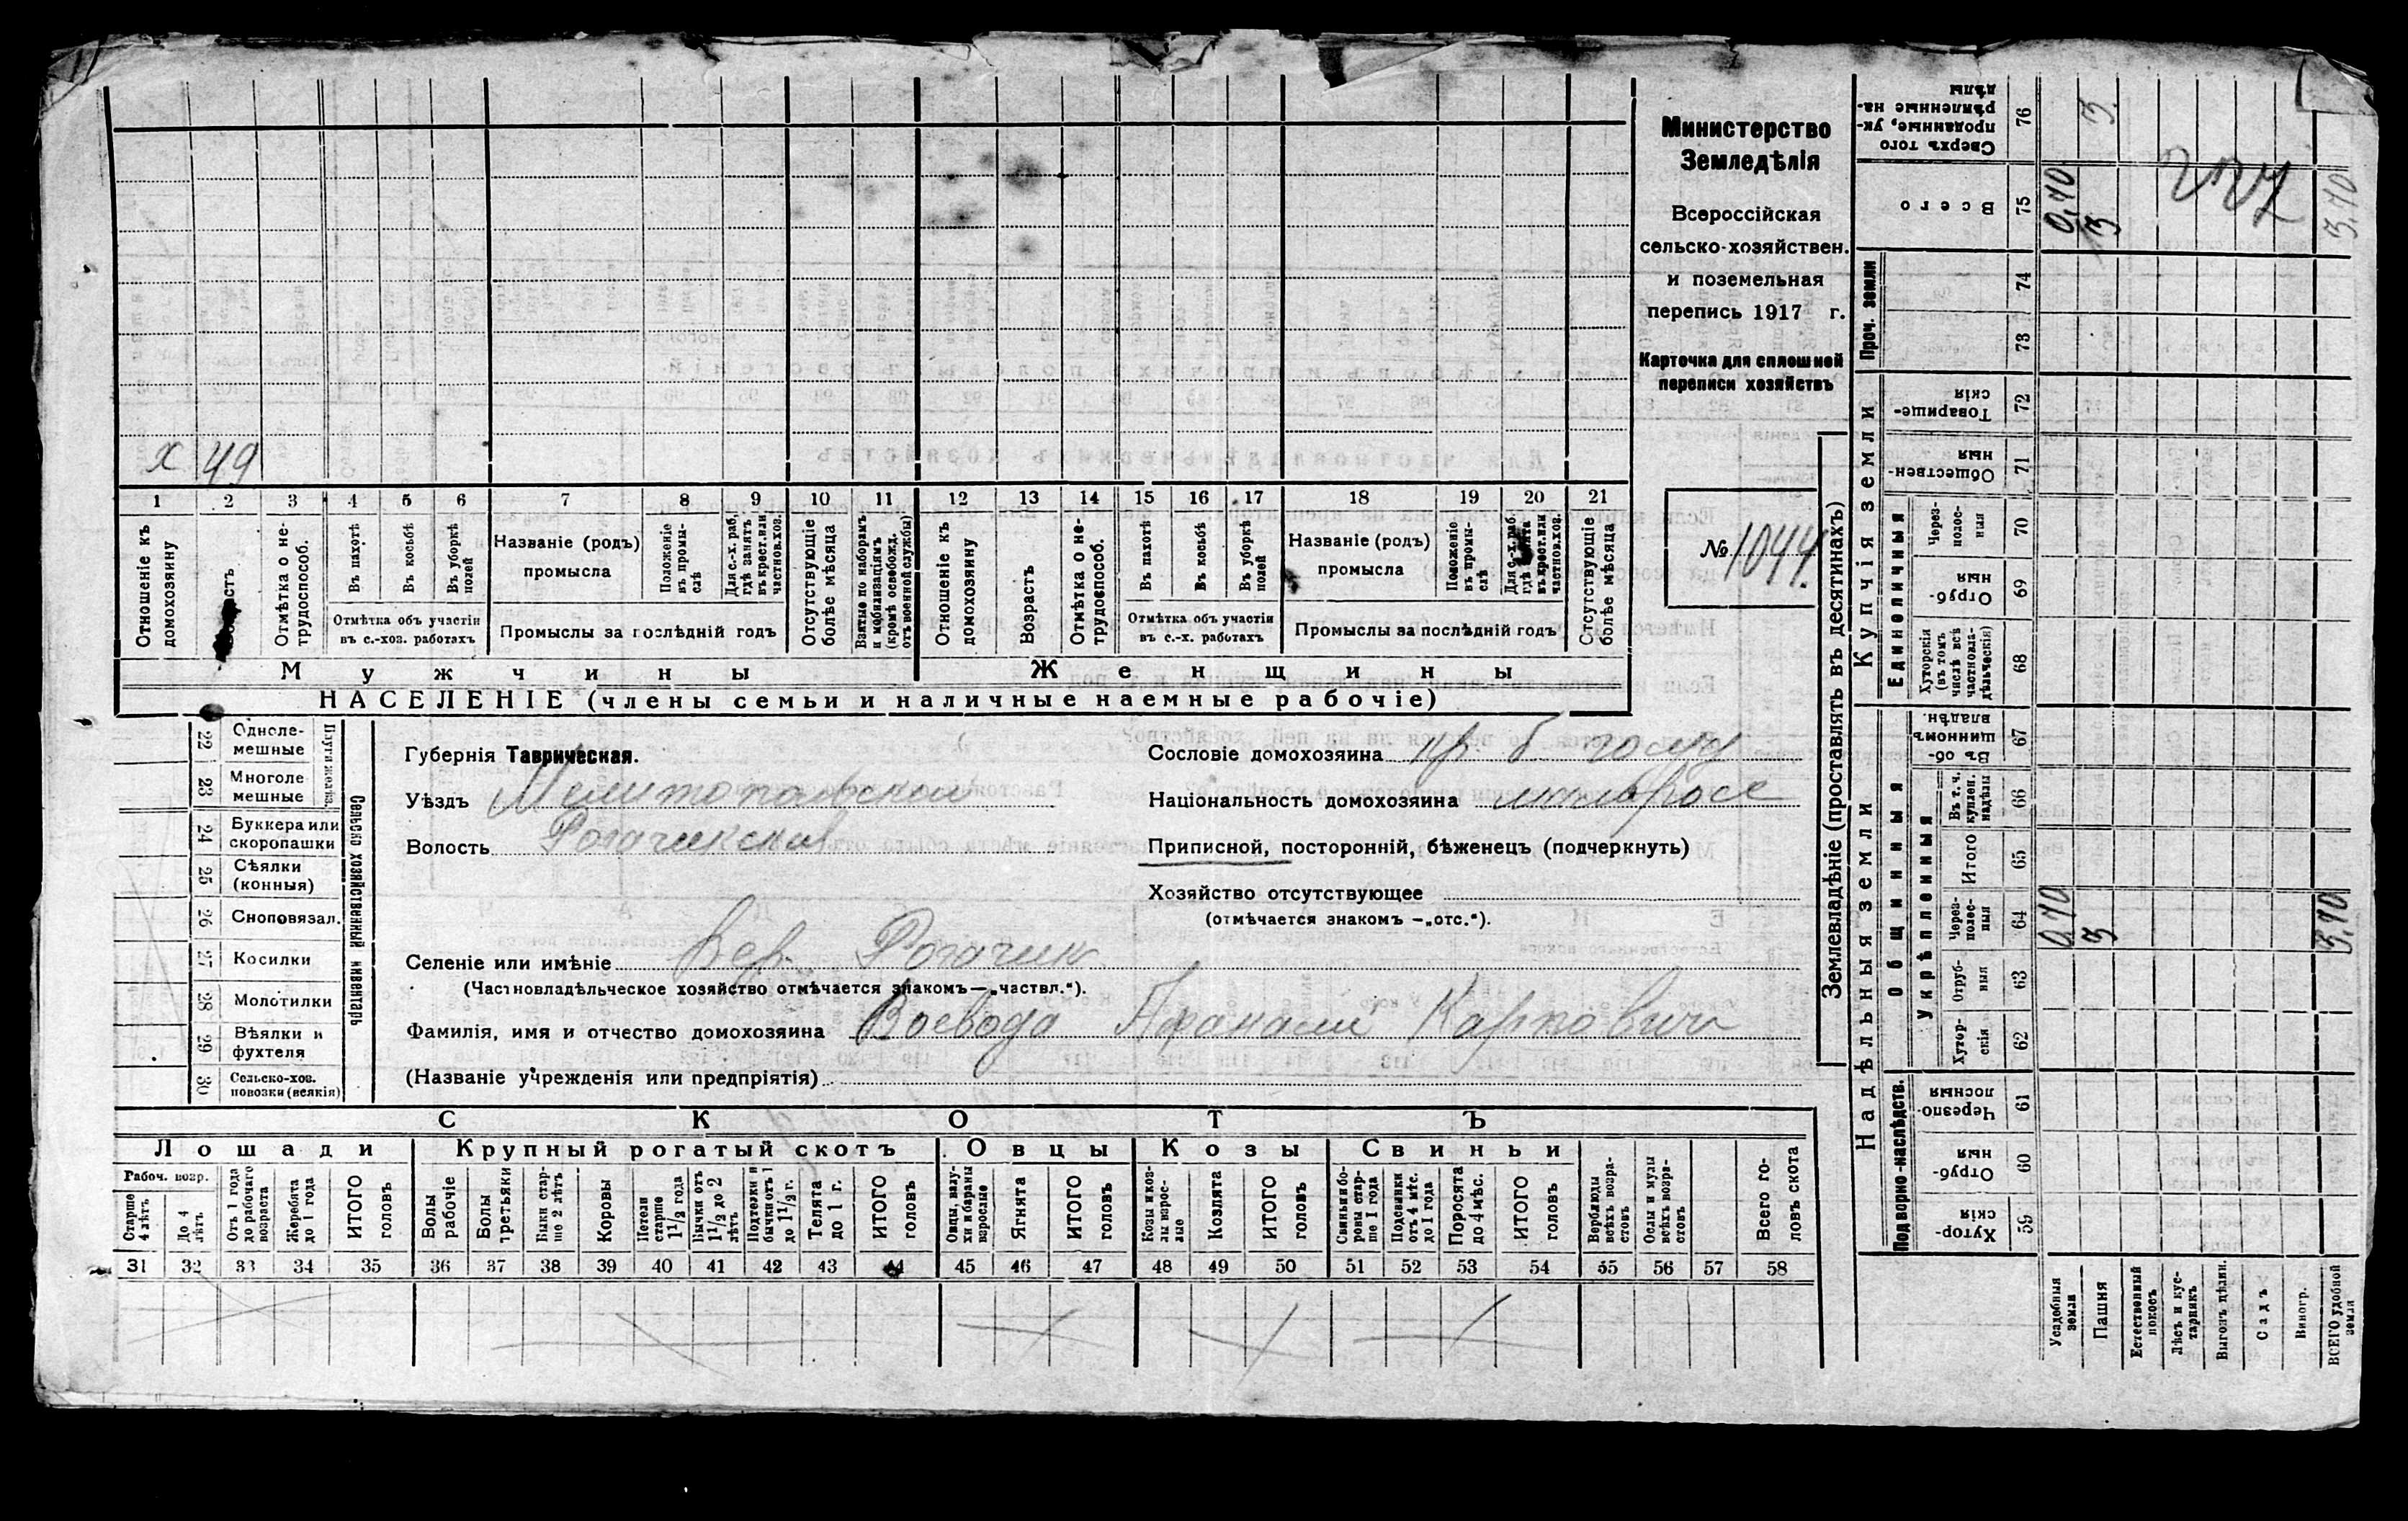 х 49
1 2 3 4 5 6 7 8 9 10 11 12 13 14 15 16 17 18 19 20 21
Отношеніе къ домохозяину
Отмѣтка о не-
трудоспособ.
Въ пахотѣ
Въ косьбѣ
Въ уборкѣ полей
Отмѣтка объ участіи
въ с.-хоз. работахъ
Названіе (родъ)
промысла
Положеніе въ промы-
слѣ
Для с.-х. раб.,
гдѣ занятъ
въ крест. или
частнов. хоз.
Промыслы за послѣдній годъ
Отсутствующіе
болѣе мѣсяца
Взятые по наборамъ
и мобилизаціямъ
(кромѣ освобожд.
отъ военной службы)
Отношеніе къ
домохозяину
Возрастъ
Отмѣтка о не-
трудоспособ.
Въ пахотѣ
Въ косьбѣ
Въ уборкѣ
полей
Отмѣтка объ участіи
въ с.-х. работахъ
Названіе (родъ)
промысла
Положеніе
въ промы-
слѣ
Промыслы за послѣдній годъ
Отсутствующіе
болѣе мѣсяца
Мужчины
Женщины
НАСЕЛЕНІЕ (члены семьи и наличные наемные рабочіе)
Министерство
Земледѣлія
Всероссійская
сельско-хозяйствен.
и поземельная
перепись 1917 г.
Карточка для сплошной
переписи хозяйствъ
№ 1044.
22 Одноле-
мешные
23 Многоле
мешные
24 Буккера или
скоропашки
25 Сѣялки
(конныя)
26 Сноповязал.
27 Косилки
28 Молотилки
29 Вѣялки и
фухтеля
30 Сельско-хоз.
повозки (всякія)
Сельско хозяйственный инвентарь
Губернія Таврическая.
Уѣздъ Мелитопольскій
Волость Рогачикская
Селеніе или имѣніе Вер. Рогачик
(Частновладѣльческое хозяйство отмѣчается знакомъ—„частвл.“).
Фамилія, имя и отчество домохозяина Воевода Афанасій Карпович
(Названіе учрежденія или предпріятія)
Сословіе домохозяина кр. б
Національность домохозяина малорос
Приписной, посторонній, бѣженецъ (подчеркнуть)
Хозяйство отсутствующее
(отмѣчается знакомъ —„отс.“).
СКОТЪ
Лошади
Крупный рогатый скотъ
Овцы
Козы
Свиньи
Рабоч. возр.
Старше
4 лѣтъ
До 4
лѣтъ
Отъ 1 года
до рабочаго
возраста
Жеребята
до 1 года
ИТОГО
головъ
Волы
рабочіе
Волы
третьяки
Быки стар-
ше 2 лѣтъ
Коровы
Нетели
старше
1 1/2 года
Бычки отъ
1 1/2 до 2
лѣтъ
Подтелки и
бычки отъ 1
до 1 1/2 г.
Телята
до 1 г.
ИТОГО
головъ
Овцы, валу-
хи и бараны
взрослые
Ягнята
ИТОГО
головъ
Козы и коз-
лы взрос-
лые
Козлята
ИТОГО
головъ
Свиньи и бо-
ровы стар-
ше 1 года
Подсвинки
отъ 4 мѣс.
до 1 года
Поросята
до 4 мѣс.
ИТОГО
головъ
Верблюды
всѣхъ возра-
стовъ
Ослы и мулы
всѣхъ возра-
стовъ
Всего го-
ловъ скота
31 32 33 34 35 36 37 38 39 40 41 42 43 44 45 46 47 48 49 50 51 52 53 54 55 56 57 58
Землевладѣніе (проставлять въ десятинахъ)
Купчія земли
Надѣльныя земли
Сверхъ того
проданные, ук-
рѣпленные на-
дѣлы
76 3.
Всего
75 0,70 3 227 3,70
Проч. земли
74
73
Товарище-
скія
72
Обществен-
ныя
71
Единоличныя
Через-
полос-
ныя
70
Отруб-
ныя
69
Хуторскія
(въ томъ
числѣ всѣ
частновла-
дѣльческія)
68
Общинныя
Въ об-
щинномъ
владѣн.
67
Укрѣпленныя
Въ т. ч.
куплен.
надѣлы
66
Итого
65
Через-
полос-
ныя
64 0,70 3 3,70
Отруб-
ныя
63
Хутор-
скія
62
Подворно-наслѣдств.
Черезпо-
лосныя
61
Отруб-
ныя
60
Хутор-
скія
59
Усадебныя
земли
Пашня
Естественный
покосъ
Лѣсъ и кус-
тарникъ
Выгонъ цѣлин.
Садъ
Виногр.
ВСЕГО удобной
земли